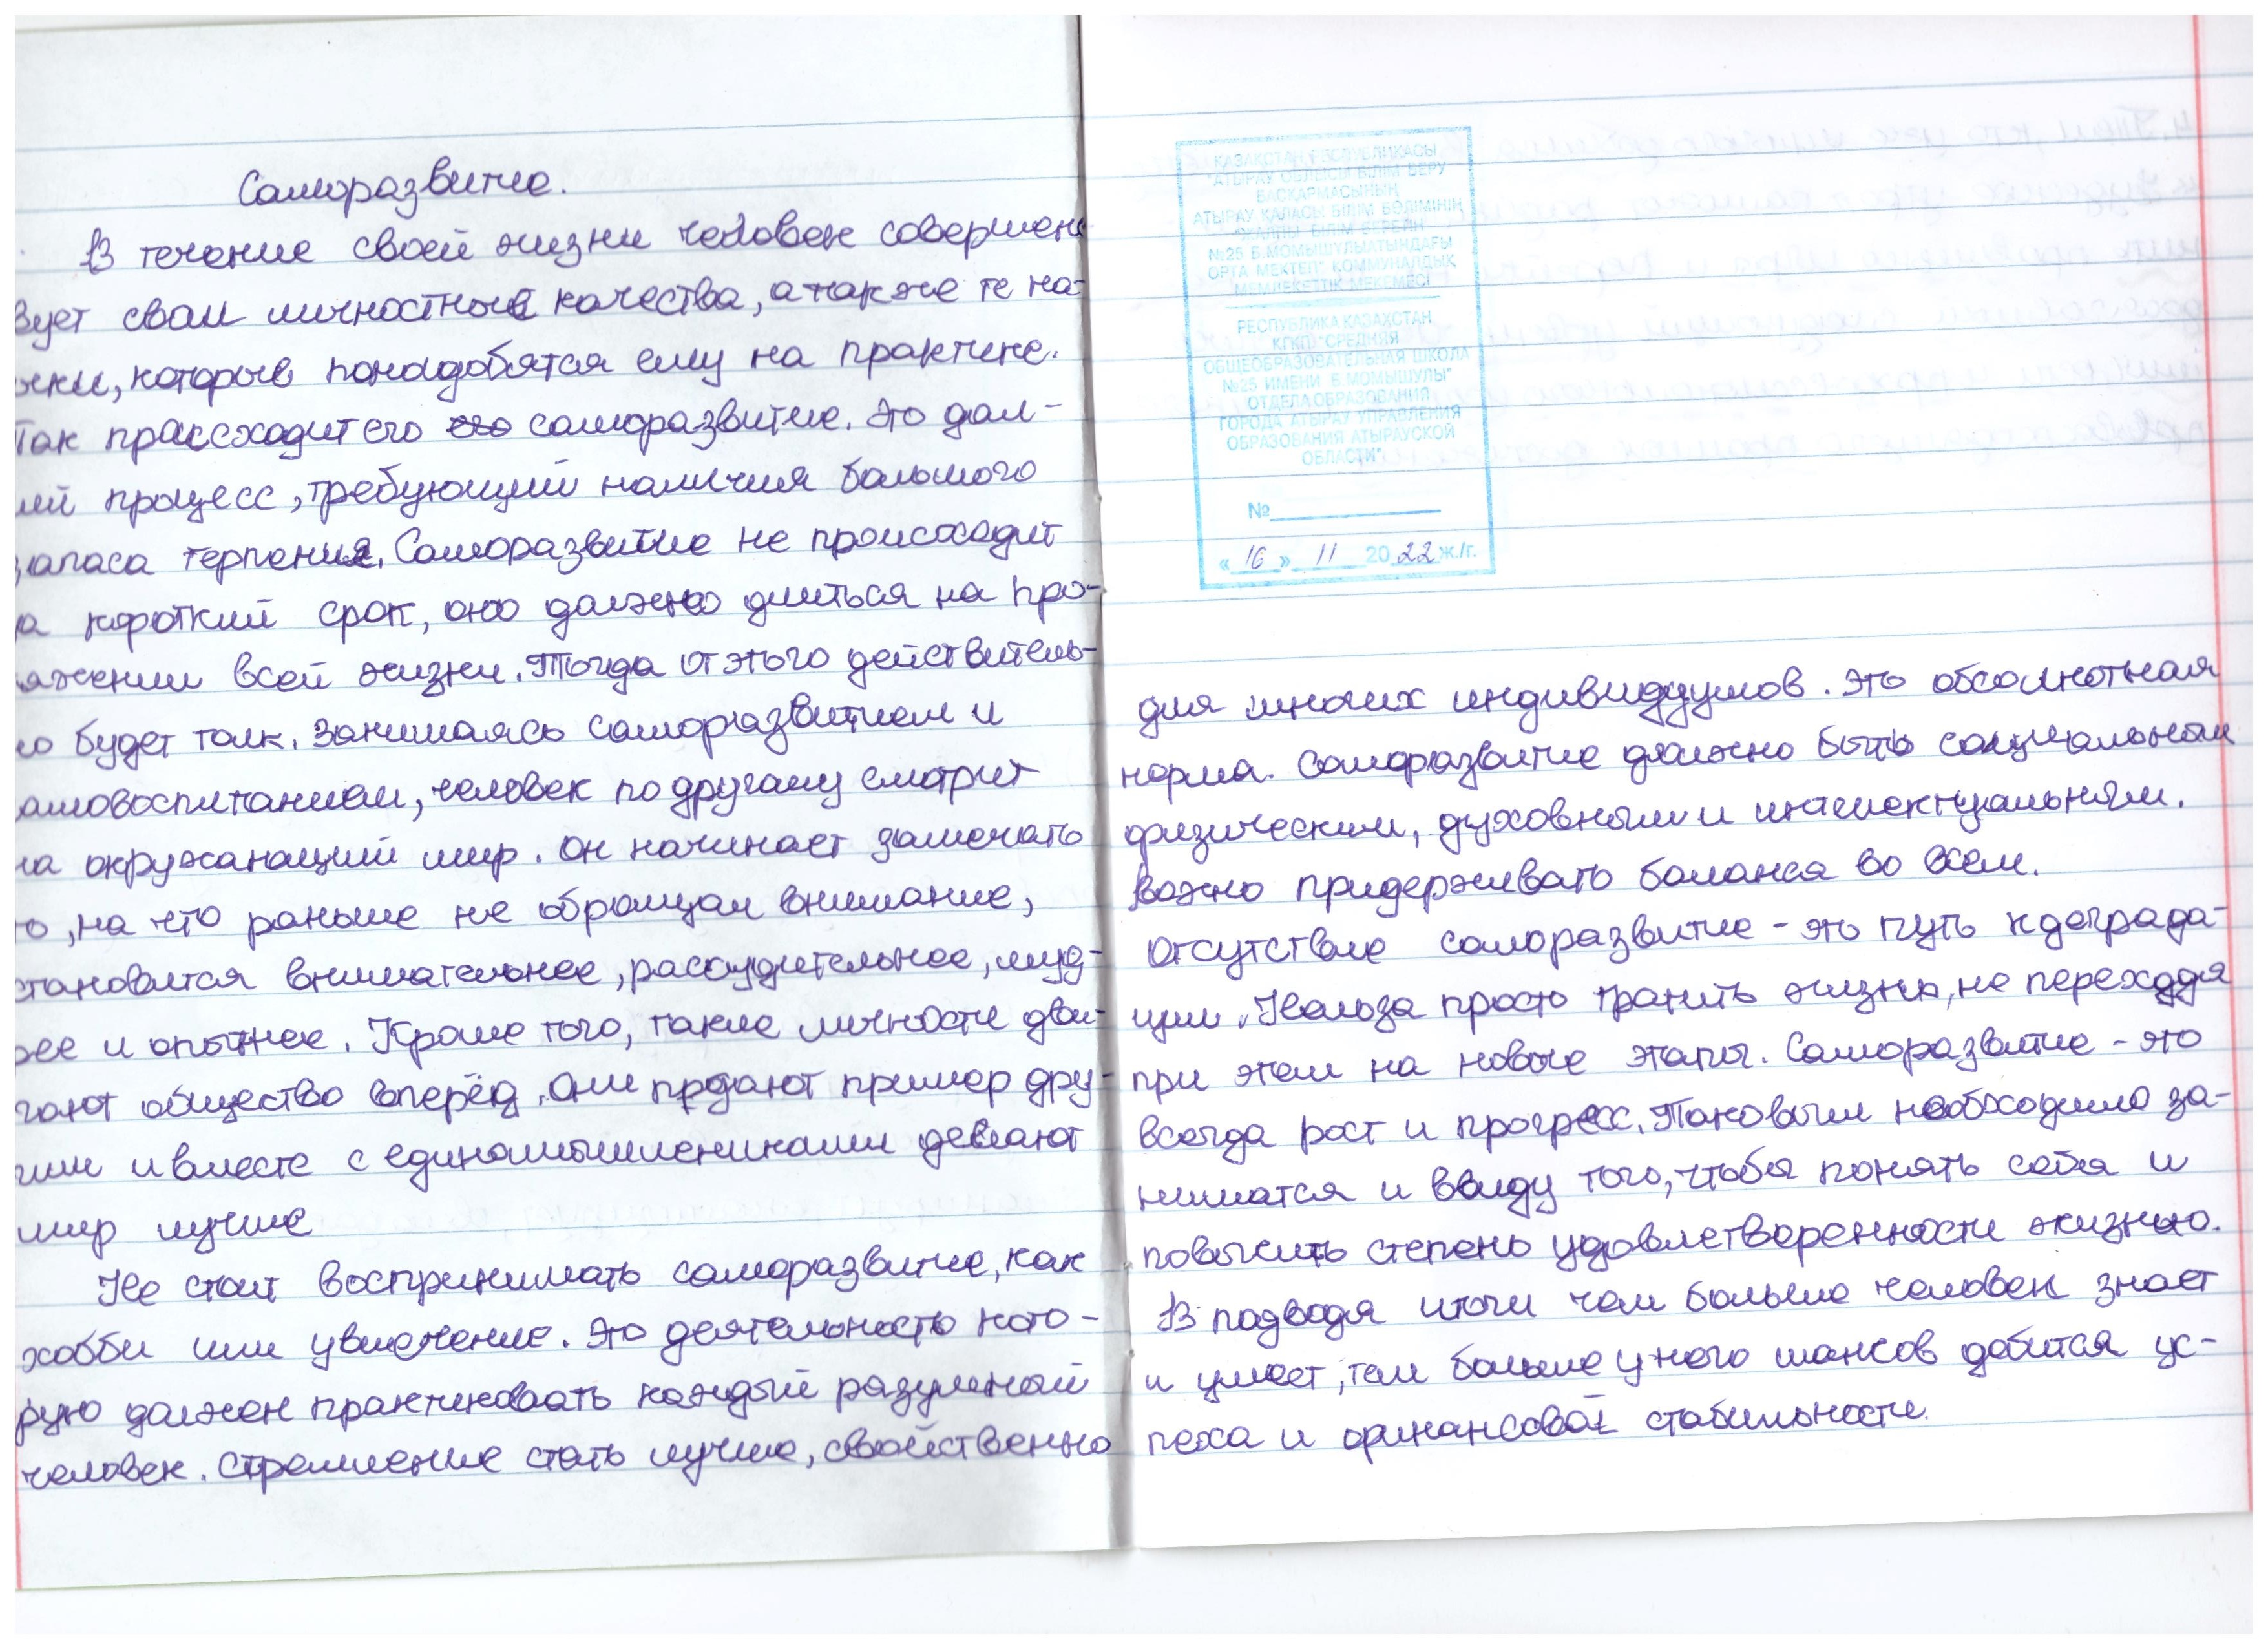 Саморазвитие.
В течение своей жизни человек совершенс
вует свои личностные качества, а также те на-
ыки, которые понадобятся ему на практике.
Так прассходит его его саморазвитие. Это дол-
ий процесс, требующий наличия большого
запаса терпения. Саморазвитие не происходит
а короткий срок, оно должно длиться на про-
яжении всей жизни. Тогда от этого действитель-
но будет толк. Занимаясь саморазвитием и
амовоспитанием, человек по другому смотрит
на окружающий мир. Он начинает замечать
то, на что раньше не обращал внимание,
становится внимательнее, рассудительнее, муд-
рее и опытнее. Кроме того, такие личности дви-
гают общество вперёд. Они прдают пример дру-
гим и вместе с единомышлениками делают
мир лучше
Не стоит воспринимать саморазвитие, как
хобби или увлечение. Это деятельность кото-
рую должен практиковать каждый разумный
человек. Стремление стать лучше, свойственно
ҚАЗАҚСТАН РЕСПУБЛИКАСЫ
"АТЫРАУ ОБЛЫСЫ БІЛІМ БЕРУ
БАСҚАРМАСЫНЫҢ
АТЫРАУ ҚАЛАСЫ БІЛІМ БӨЛІМІНІҢ
ЖАЛПЫ БІЛІМ БЕРЕТІН
№25 Б.МОМЫШҰЛЫ АТЫНДАҒЫ
ОРТА МЕКТЕП" КОММУНАЛДЫҚ
МЕМЛЕКЕТТІК МЕКЕМЕСІ
РЕСПУБЛИКА КАЗАХСТАН
КГКП "СРЕДНЯЯ
ОБЩЕОБРАЗОВАТЕЛЬНАЯ ШКОЛА
№25 ИМЕНИ Б.МОМЫШУЛЫ"
ОТДЕЛА ОБРАЗОВАНИЯ
ГОРОДА АТЫРАУ УПРАВЛЕНИЯ
ОБРАЗОВАНИЯ АТЫРАУСКОЙ
ОБЛАСТИ"
№
« 16 » 11 20 22 ж./г.
для многих индивидуумов. Это обсолютная
норма. Саморазвитие должно быть социальным
физическим, духовным и интелектуальным.
Важно придерживать баланса во всем.
Отсутствие саморазвитие - это путь к деграда-
ции. Нельза просто транить жизнь, не переходя
при этом на новые этапы. Саморазвитие - это
всегда рост и прогресс. Таковым необходимо за-
ниматся и ввиду того, чтобы понять себя и
повысить степень удовлетворенности жизнью.
В подводя итоги чем больше человек знает
и умеет, тем больше у него шансов добится ус-
пеха и финансовой стабильности